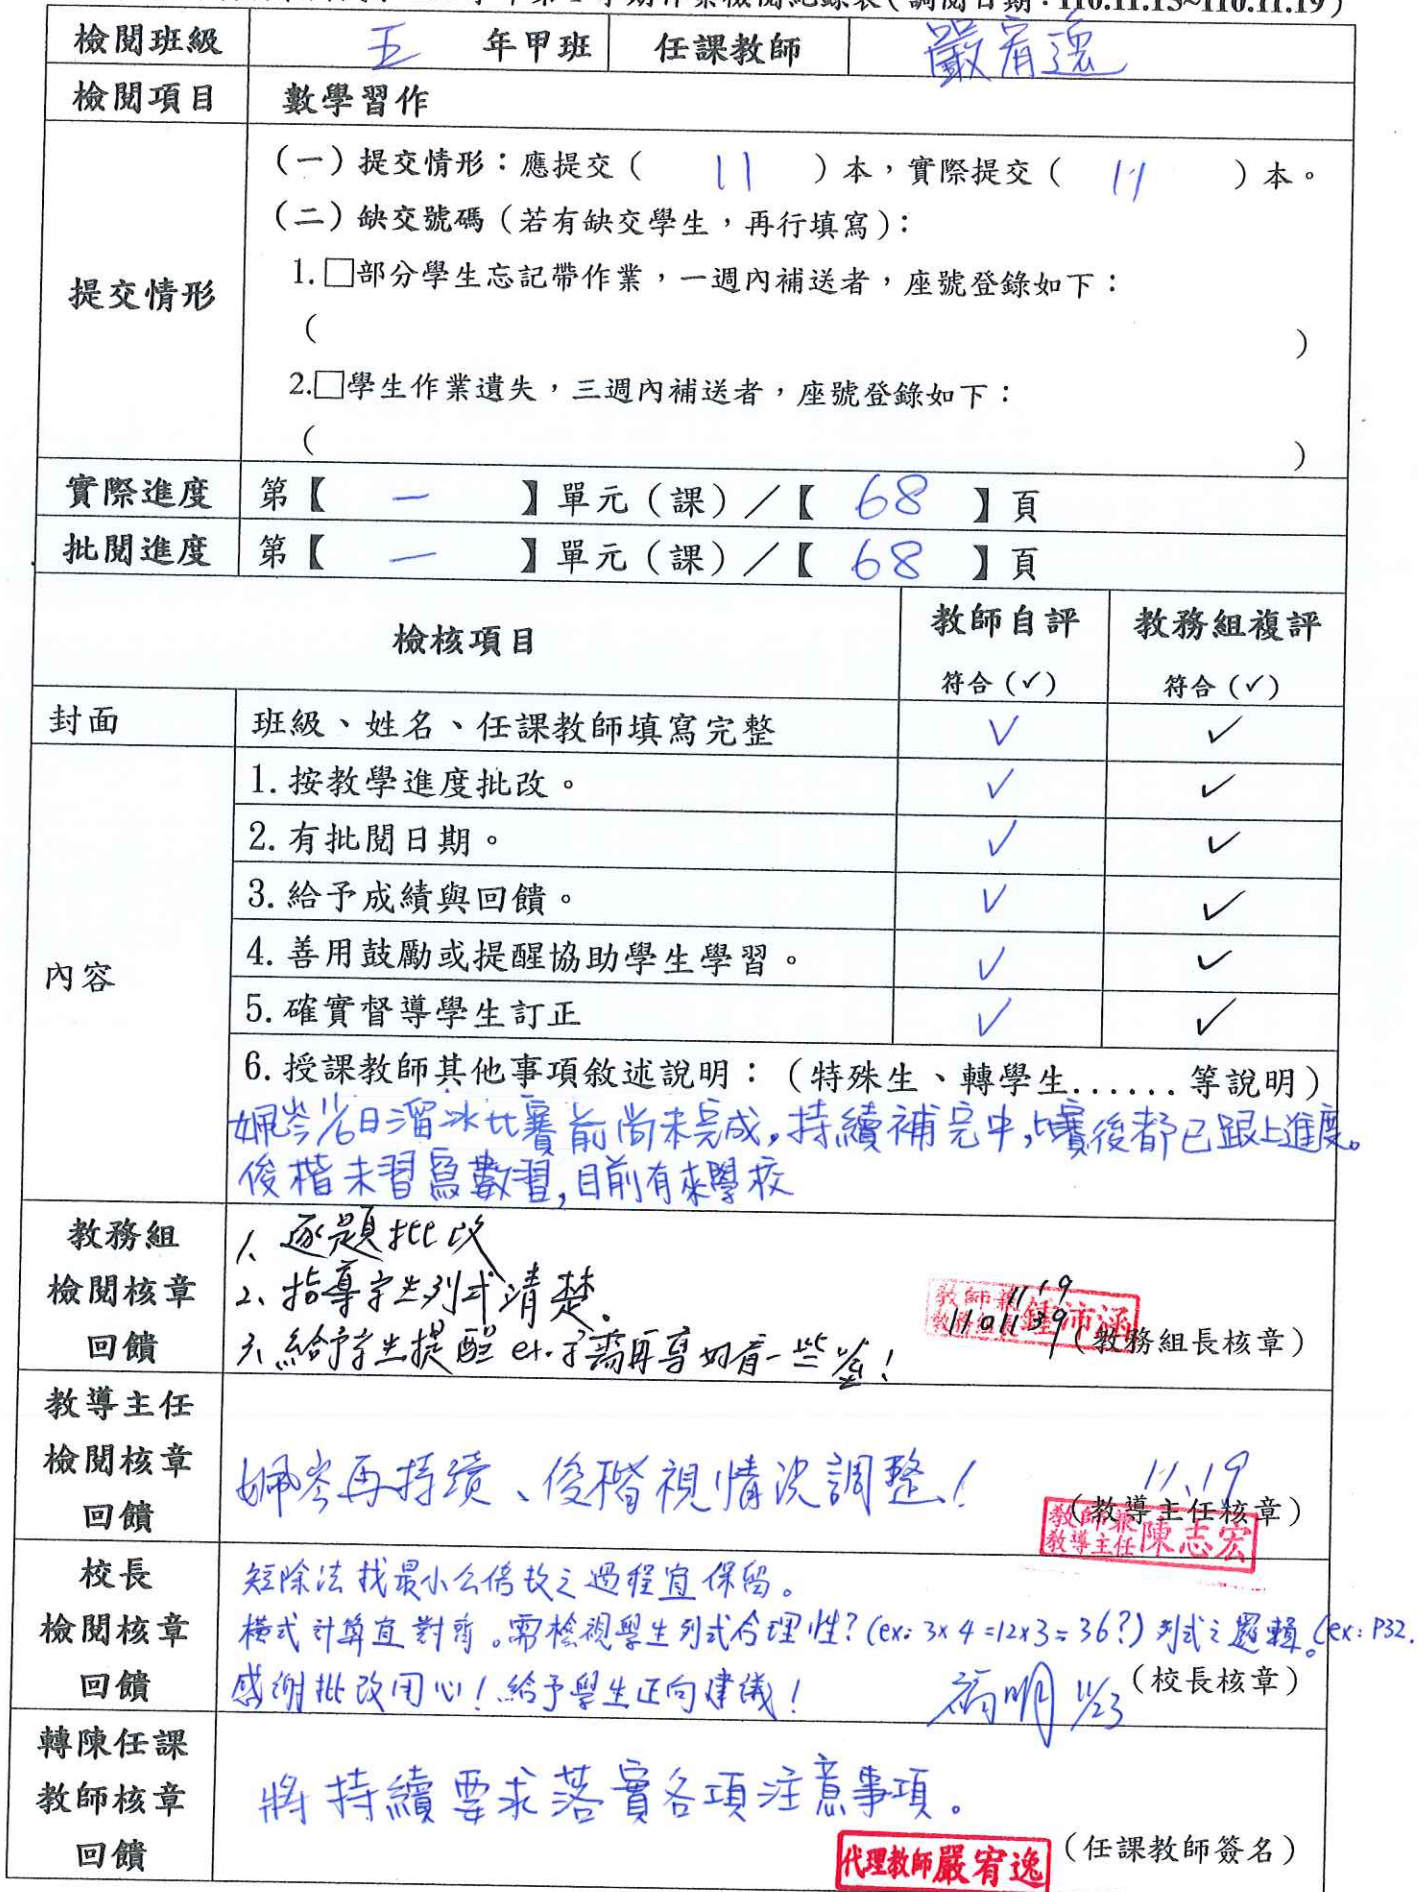 第1學期作業檢閱紀錄表(調閱日期：110.11.15~110.11.19)
檢閱班級 五 年甲班 任課教師 嚴宥逸
檢閱項目 數學習作
提交情形
(一)提交情形：應提交( 11 )本，實際提交( 11 )本。
(二)缺交號碼(若有缺交學生，再行填寫)：
1.□部分學生忘記帶作業，一週內補送者，座號登錄如下：
( )
2.□學生作業遺失，三週內補送者，座號登錄如下：
( )
實際進度 第【 一 】單元(課)／【 68 】頁
批閱進度 第【 一 】單元(課)／【 68 】頁
檢核項目 教師自評 教務組複評
符合(✓) 符合(✓)
封面 班級、姓名、任課教師填寫完整 ✓ ✓
內容
1.按教學進度批改。 ✓ ✓
2.有批閱日期。 ✓ ✓
3.給予成績與回饋。 ✓ ✓
4.善用鼓勵或提醒協助學生學習。 ✓ ✓
5.確實督導學生訂正 ✓ ✓
6.授課教師其他事項敘述說明：(特殊生、轉學生......等說明)
姵岑 日溜冰比賽前尚未完成，持續補完中，比賽後都已跟上進度。
俊楷未習寫數習，目前有來學校
教務組
檢閱核章
回饋
1、逐題批改
2、指導學生列式清楚。
3、給予學生提醒 ex.
教師兼
教務組長 鍾沛涵
1119
(教務組長核章)
教導主任
檢閱核章
回饋
姵岑再持續、俊楷視情況調整！
11.19
(教導主任核章)
教師兼
教導主任 陳志宏
校長
檢閱核章
回饋
短除法找最小公倍數之過程宜保留。
橫式計算宜對齊。需檢視學生列式合理性?(ex: 3x4=12x3=36?) 列式之邏輯。(ex: P32.
感謝批改用心！給予學生正向建議！
11/23
(校長核章)
轉陳任課
教師核章
回饋
將持續要求落實各項注意事項。
代理教師 嚴宥逸
(任課教師簽名)